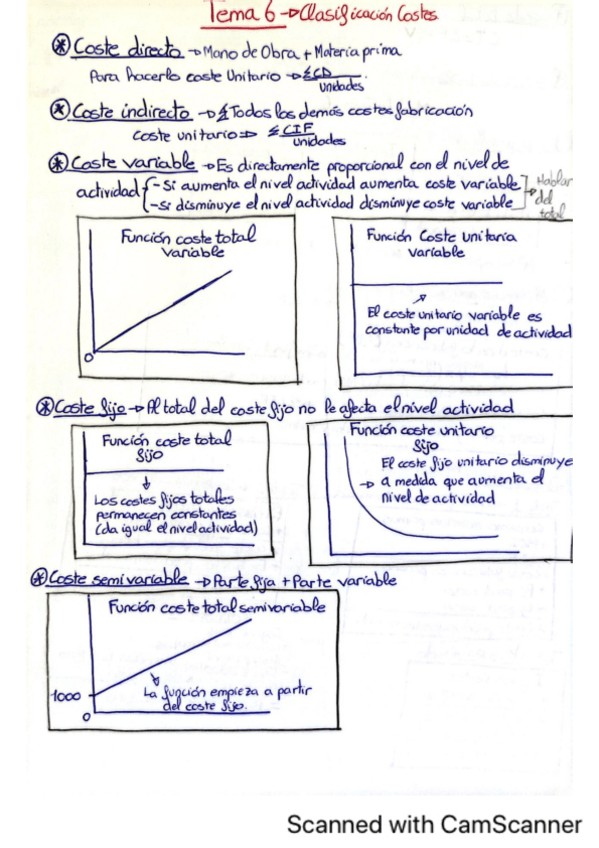 Tema 6 → Clasificación Costes.
* Coste directo → Mano de Obra + Materia prima
Para hacerlo coste Unitario → ΣCD / Unidades
* Coste indirecto → Σ Todos los demás costes fabricación
Coste unitario ⇒ ΣCIF / Unidades
* Coste variable → Es directamente proporcional con el nivel de
actividad { - Si aumenta el nivel actividad aumenta coste variable
- Si disminuye el nivel actividad disminuye coste variable ] → Hablar
del
total
Función coste total
variable
0
Función Coste unitaria
variable
El coste unitario variable es
constante por unidad de actividad
* Coste fijo → Al total del coste fijo no le afecta el nivel actividad
Función coste total
fijo
Los costes fijos totales
permanecen constantes
(da igual el nivel actividad)
Función coste unitario
fijo
El coste fijo unitario disminuye
→ a medida que aumenta el
nivel de actividad
* Coste semivariable → Parte fija + Parte variable
Función coste total semivariable
1000
0
La función empieza a partir
del coste fijo.
Scanned with CamScanner